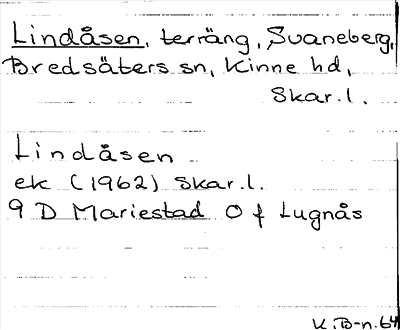 Lindåsen, terräng, Svaneberg,
Bredsäters sn, Kinne hd,
Skar.l.
Lindåsen
ek (1962) Skar.l.
9 D Mariestad O f Lugnås
K.B-n.64